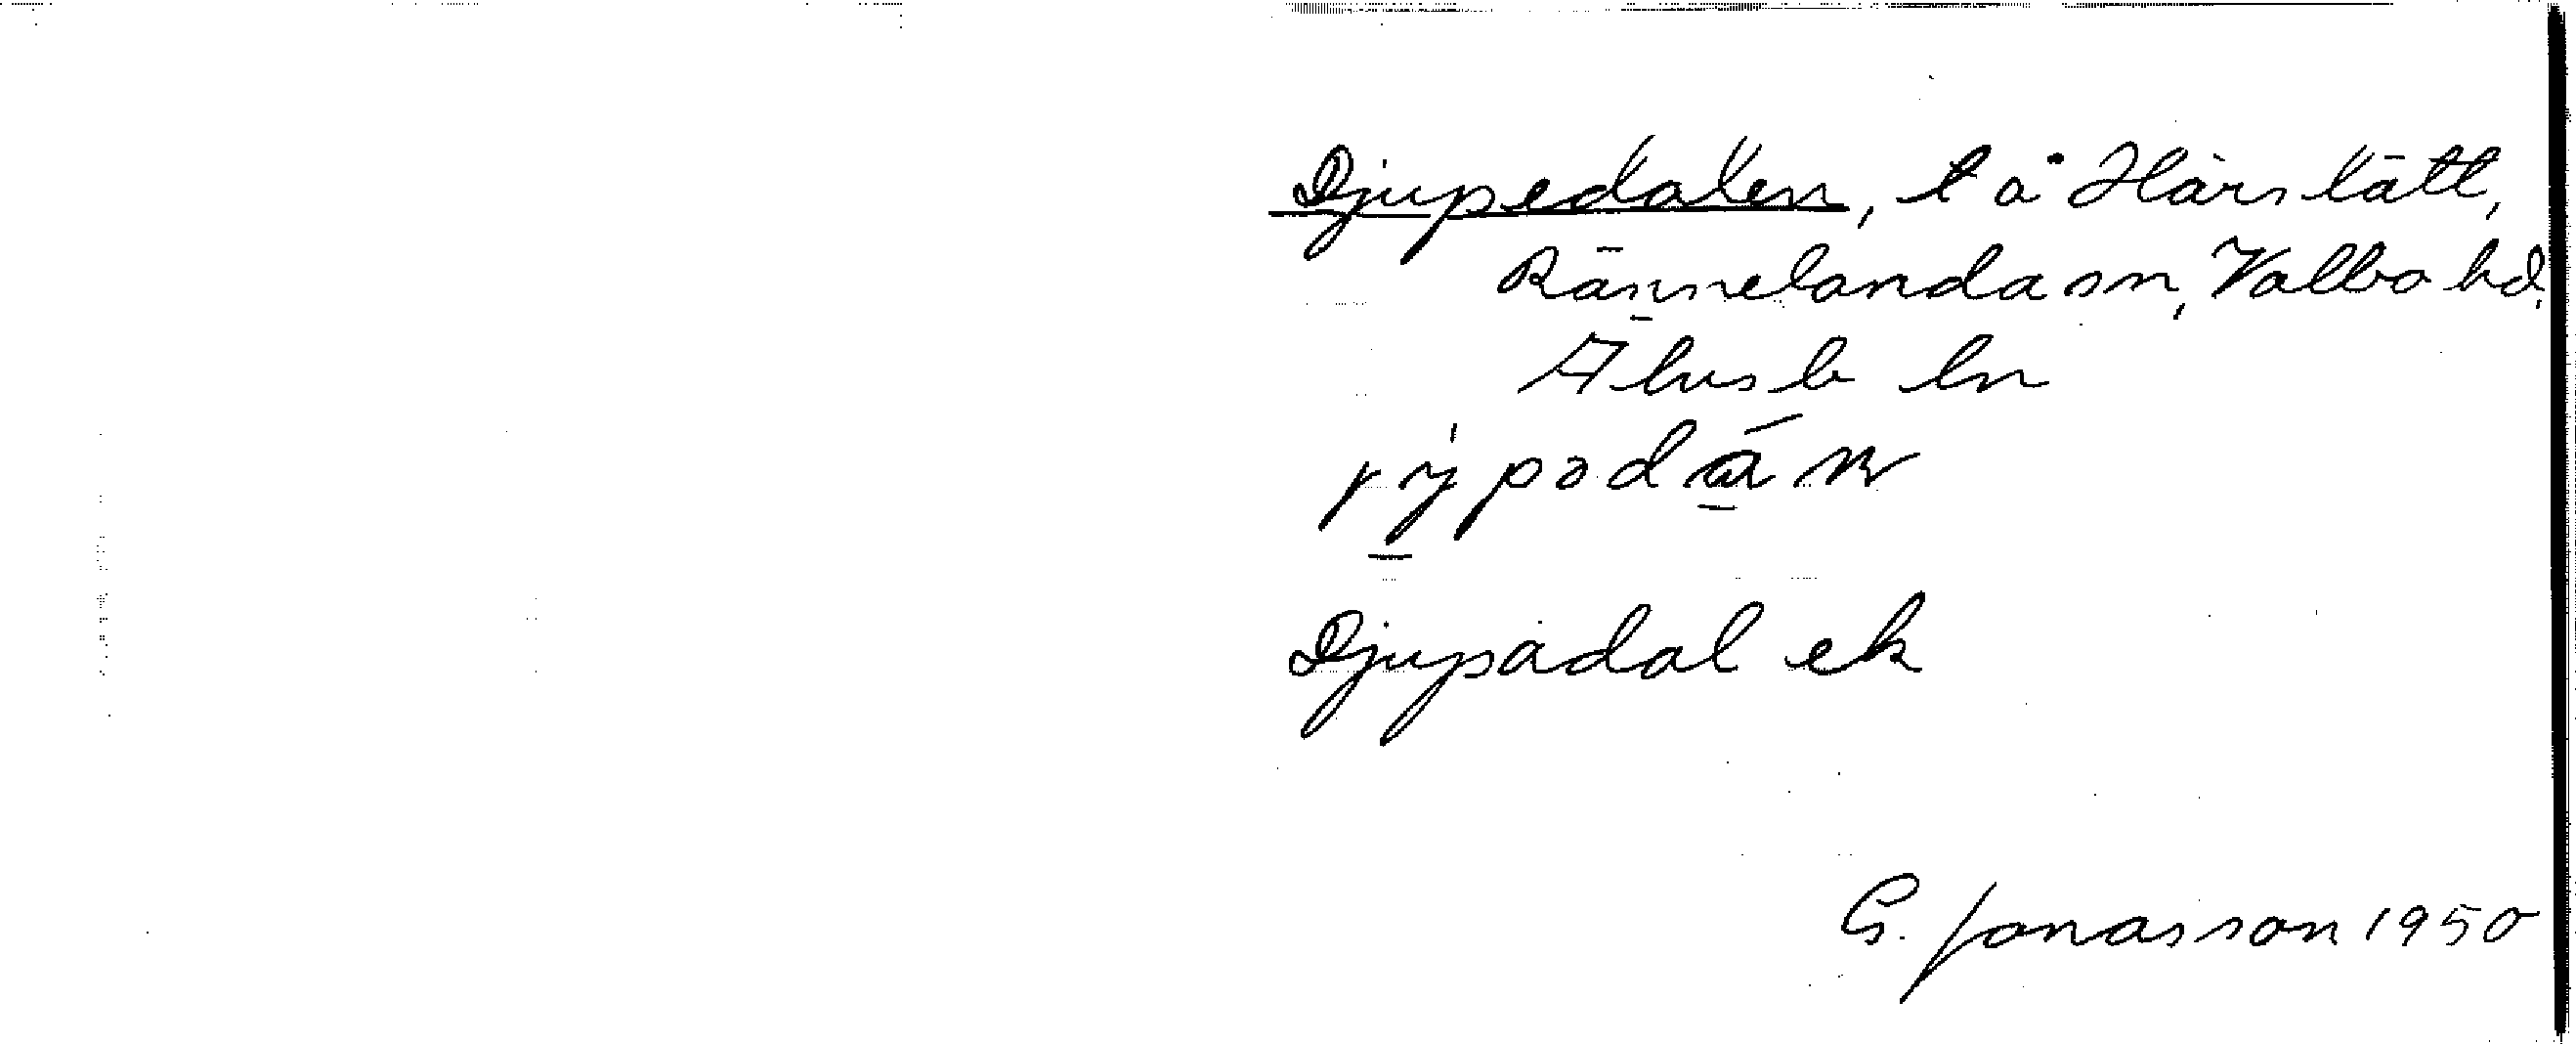 Djupedalen, t å Hårslätt,
Rännelanda sn, Valbo hd,
Älvsb ln
Djupådal ek
G. Jonasson 1950